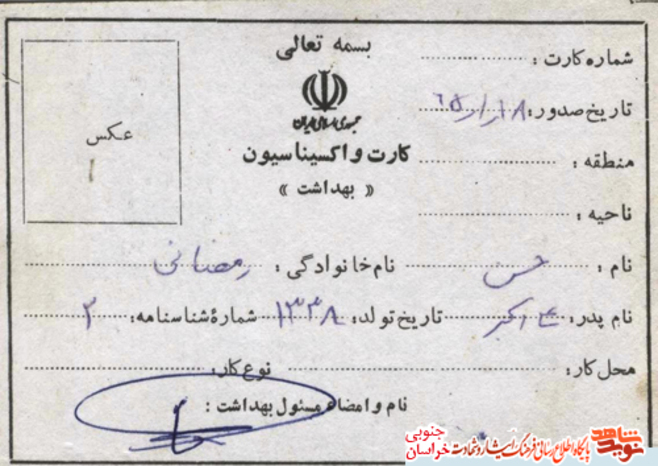 بسمه تعالی
جمهوری اسلامی ایران
کارت واکسیناسیون
« بهداشت »
عکس
شماره کارت :
تاریخ صدور : ۶۵/۱/۱۸
منطقه :
ناحیه :
نام : حسن نام خانوادگی : رمضانی
نام پدر : اکبر تاریخ تولد : ۱۳۳۸ شمارهٔ شناسنامه : ۲
محل کار : نوع کار :
نام و امضاء مسئول بهداشت :
نوید شاهد
پایگاه اطلاع رسانی فرهنگ ایثار و شهادت
خراسان جنوبی